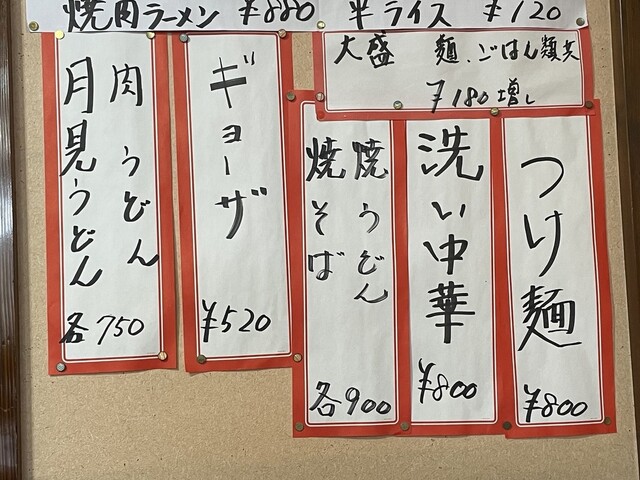 焼肉ラーメン ¥880
半ライス ¥120
大盛 麺、ごはん類共
¥180増し
つけ麺
¥800
洗い中華
¥800
焼うどん
焼そば
各900
ギョーザ
¥520
肉うどん
月見うどん
各750